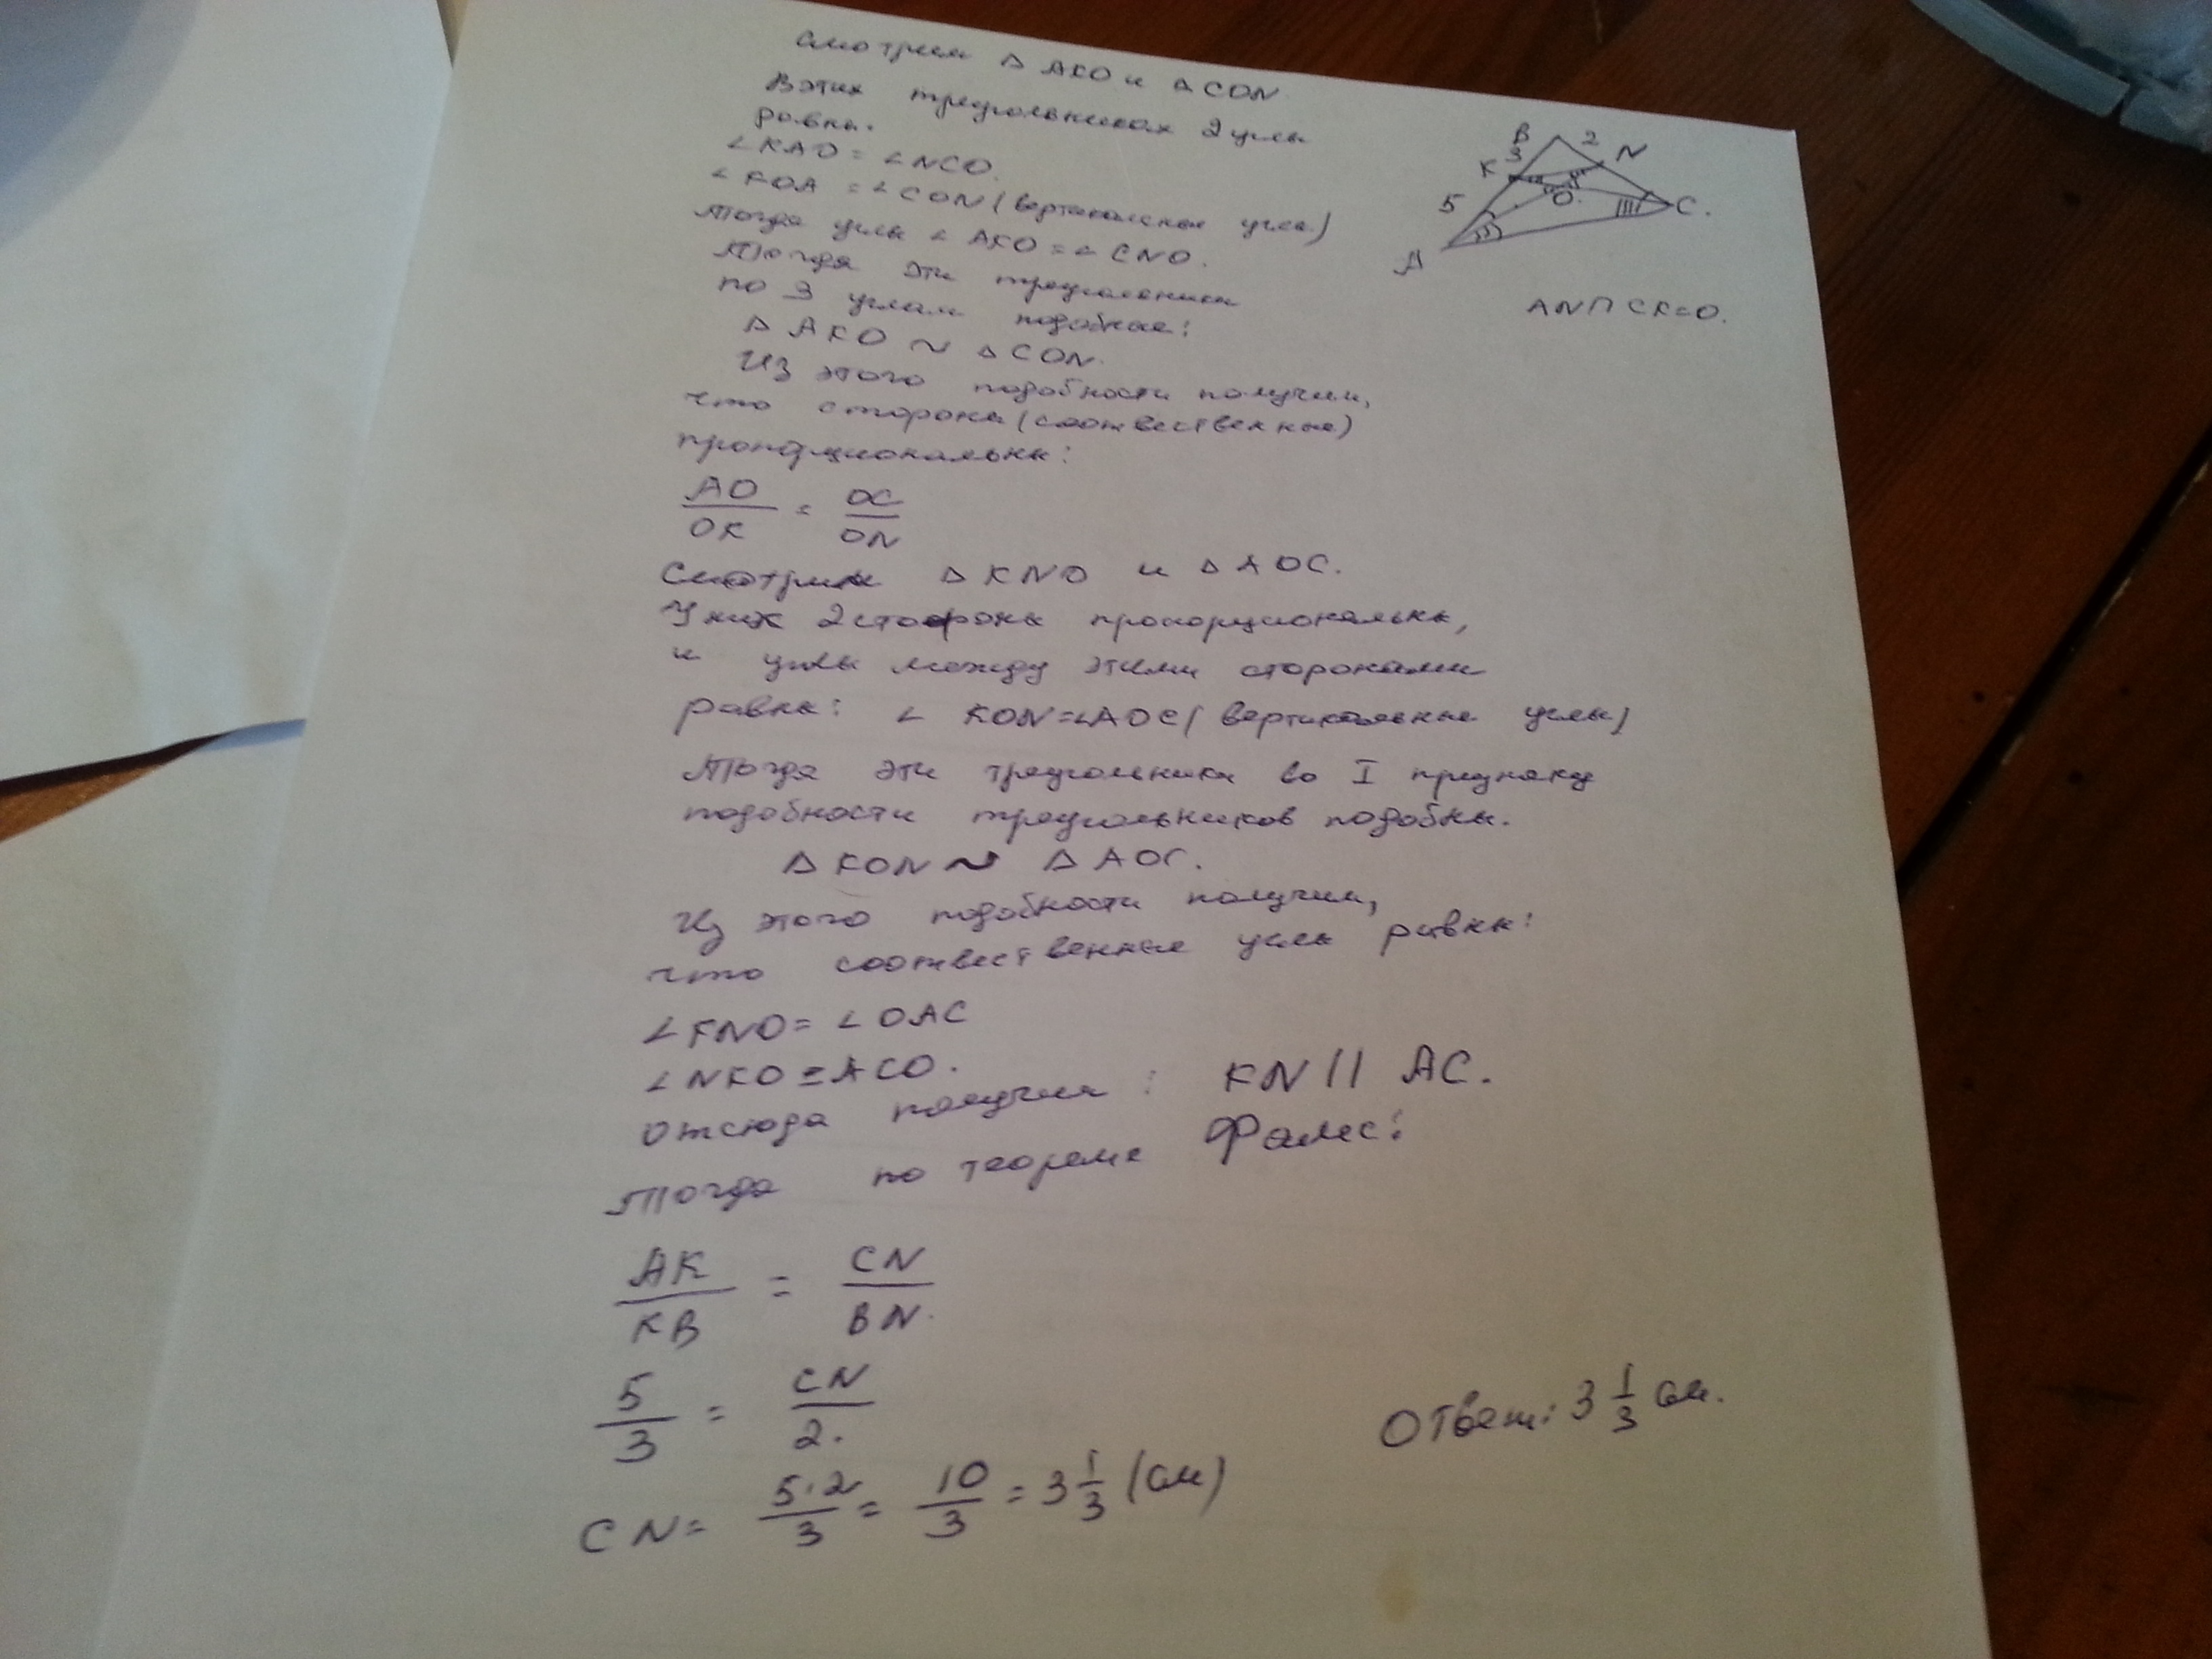 Смотрим Δ AKO и Δ CON
В этих треугольниках 2 углы
равны.
∠ KAO = ∠ NCO.
∠ KOA = ∠ CON (вертикальные углы)
Тогда углы ∠ AKO = ∠ CNO.
Тогда эти треугольники
по 3 углам подобные:
Δ AKO ~ Δ CON.
Из этого подобности получим,
что стороны (соотвественные)
пропорциональны:
AO/OK = OC/ON
Смотрим Δ KNO и Δ AOC.
У них 2 стороны пропорциональны,
и углы между этими сторонами
равны: ∠ KON = ∠AOC (вертикальные углы)
Тогда эти треугольники во I признаку
подобности треугольников подобны.
Δ KON ~ Δ AOC.
Из этого подобности получим,
что соотвественные углы равны:
∠ KNO = ∠ OAC
∠ NKO = ACO.
Отсюда получим: KN || AC.
Тогда по теореме Фалес:
AK/KB = CN/BN.
5/3 = CN/2.
CN = 5·2/3 = 10/3 = 3 1/3 (см)
Ответ: 3 1/3 см.
B 2 N
3
K
5 O. C.
A
AN ∩ CK = O.